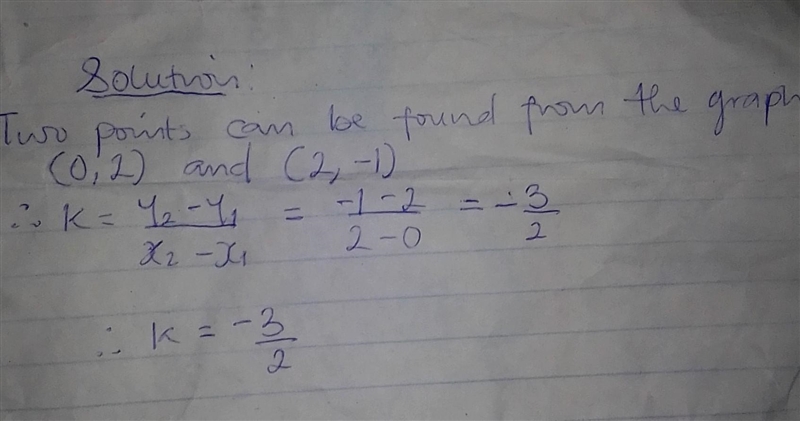 Solution:
Two points can be found from the graph
(0,2) and (2,-1)
∴ K = y₂ - y₁ / x₂ - x₁ = -1-2 / 2-0 = -3/2
∴ K = -3/2